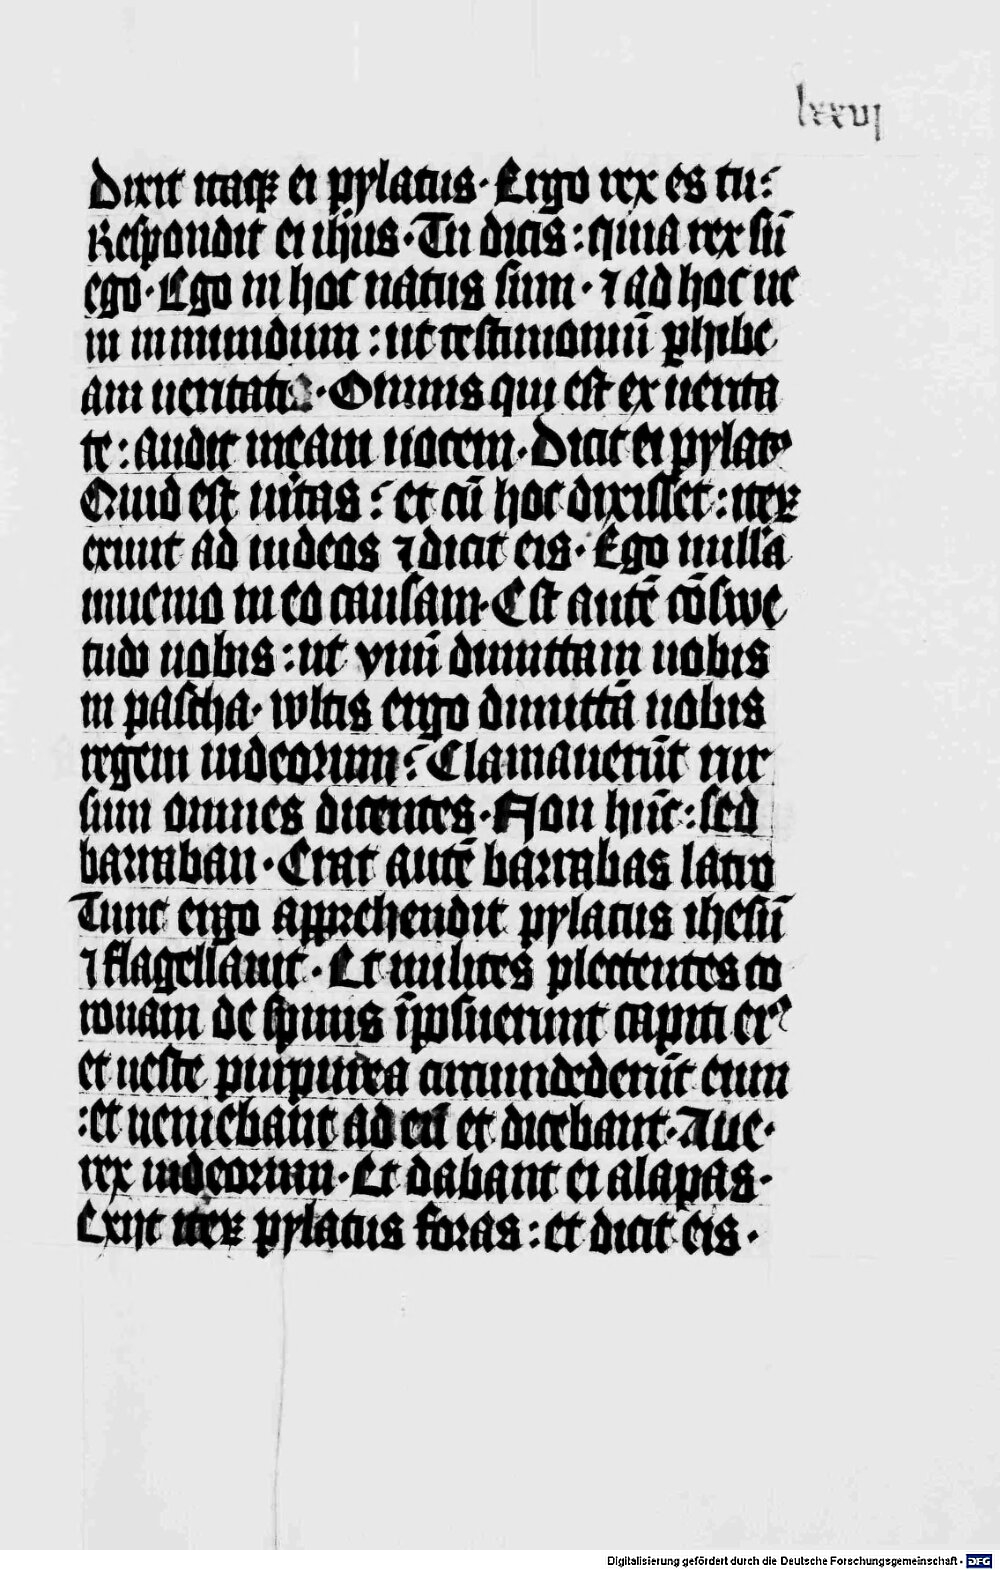 lxxvj
Dixit itaqꝫ ei pylatus. Ergo rex es tu:
Respondit ei ihus. Tu dicis: quia rex sū
ego. Ego in hoc natus sum. ⁊ ad hoc ue
ni in mundum: ut testimoniū ꝑhibe
am ueritati. Omnis qui est ex uerita
te: audit meam uocem. Dicit ei pylatꝰ
Quid est uitas: et cū hoc dixisset: iterꝝ
exiuit ad iudeos ⁊ dicit eis. Ego nullā
inuenio in eo causam. Est autē cōswe
tudo uobis: ut vnū dimittam uobis
in pascha. wltis ergo dimittā uobis
regem iudeorum: Clamauerūt rur
sum omnes dicentes. Non hūc: sed
barraban. Erat autē barrabas latro
Tunc ergo apprehendit pylatus ihesū
⁊ flagellauit. Et milites plectentes co
ronam de spinis īposuerunt capiti eiꝰ
et ueste purpurea circumdederūt eum
: et ueniebant ad eū et dicebant. Aue.
rex iudeorum. Et dabant ei alapas.
Exijt iterꝝ pylatus foras: et dicit eis.
Digitalisierung gefördert durch die Deutsche Forschungsgemeinschaft - DFG